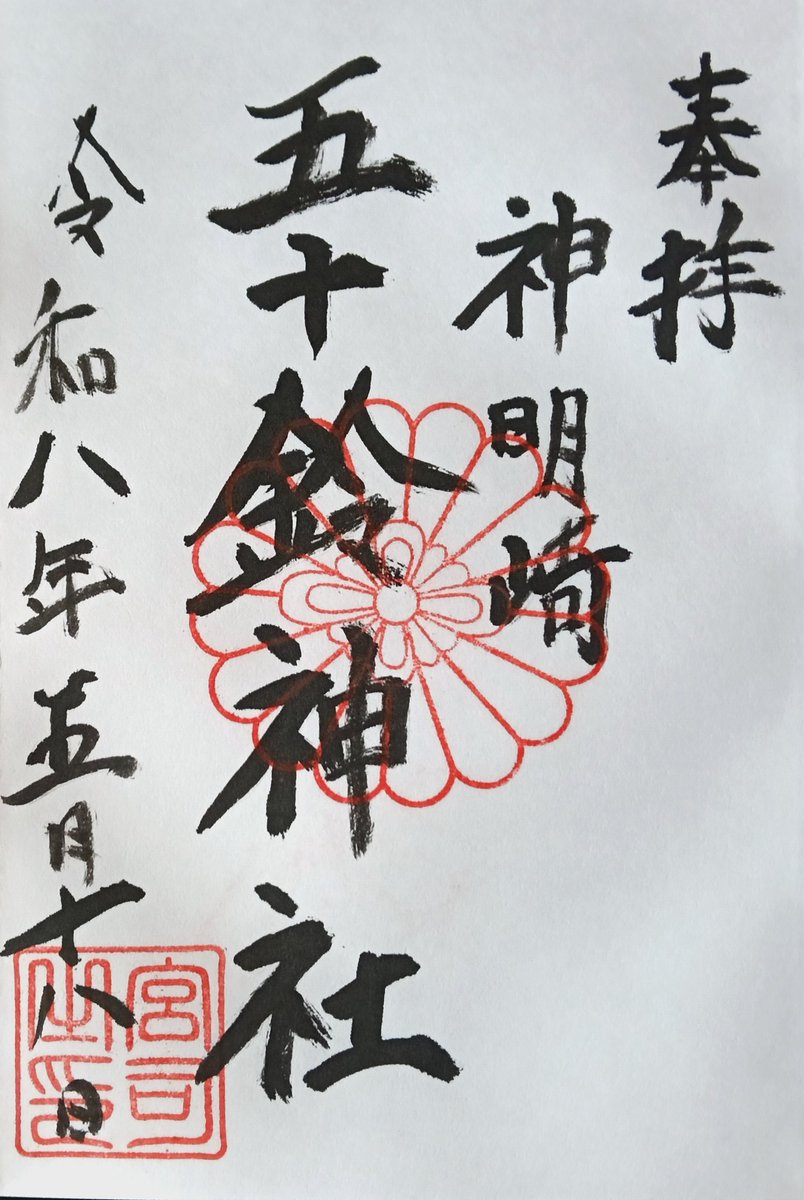 奉拝
神明崎
五十鈴神社
令和八年五月十八日
宮司之印